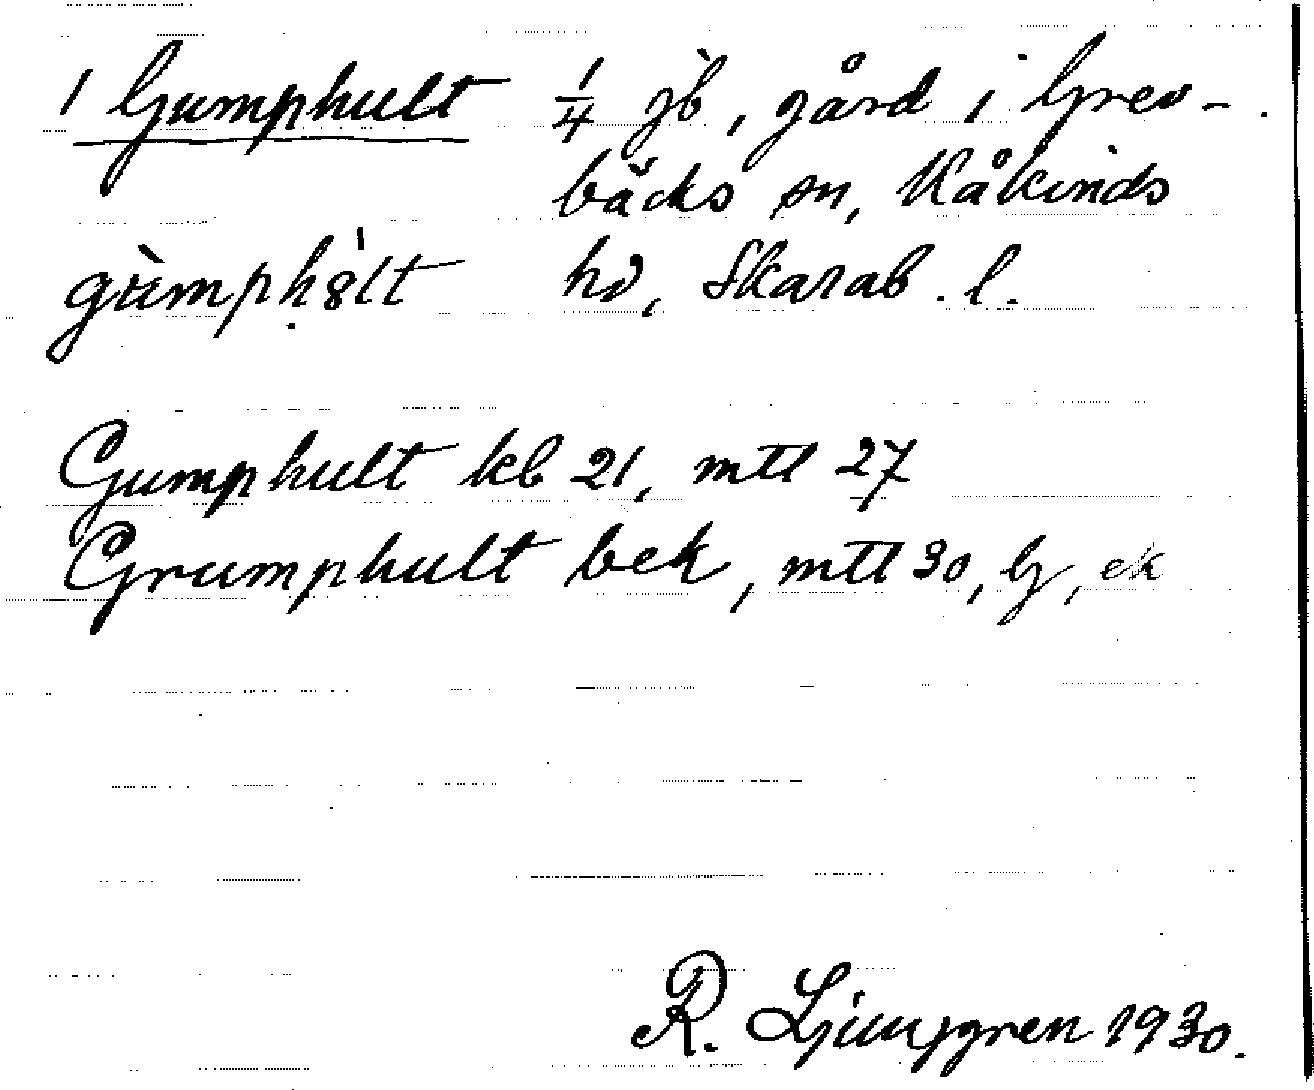 1 Gumphult 1/4 jb, gård i Grev-
bäcks sn, Kåkinds
gùmphı̣8̍lt hd, Skarab. l.
Gumphult kb 21, mtl 27
Grumphult bek, mtl 30, G, ek
R. Ljunggren 1930.